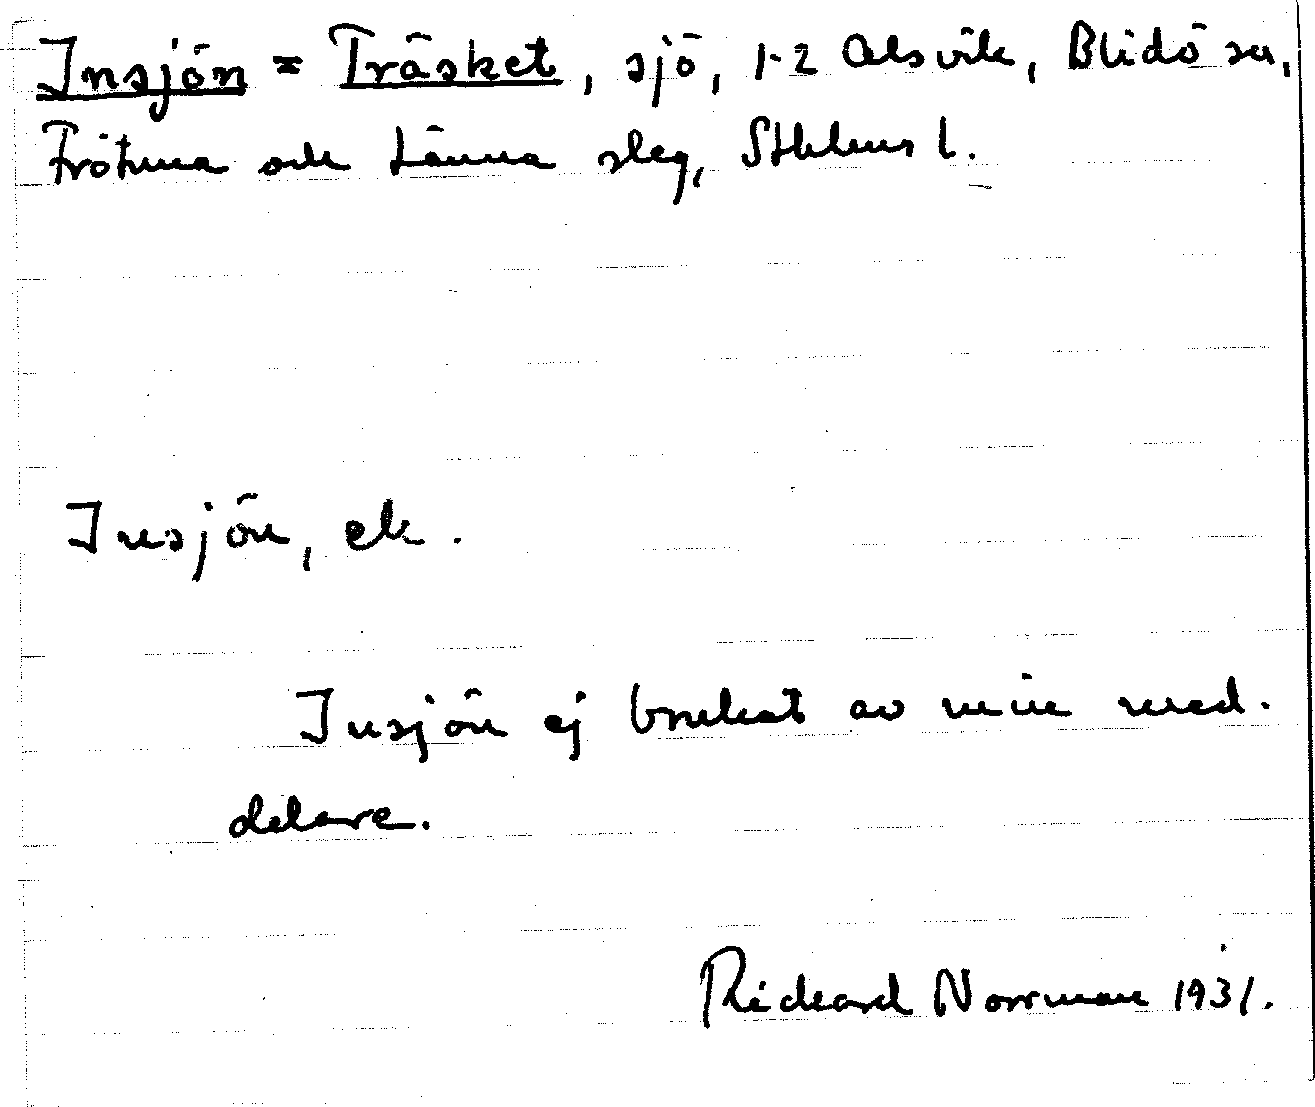 Insjön = Träsket, sjö, 1-2 Alsvik, Blidö sn,
Frötuna och Länna slag, Sthlms l.
Insjön, ek.
Insjön ej brukat av min med.
delare.
Rickard Norrman 1931.